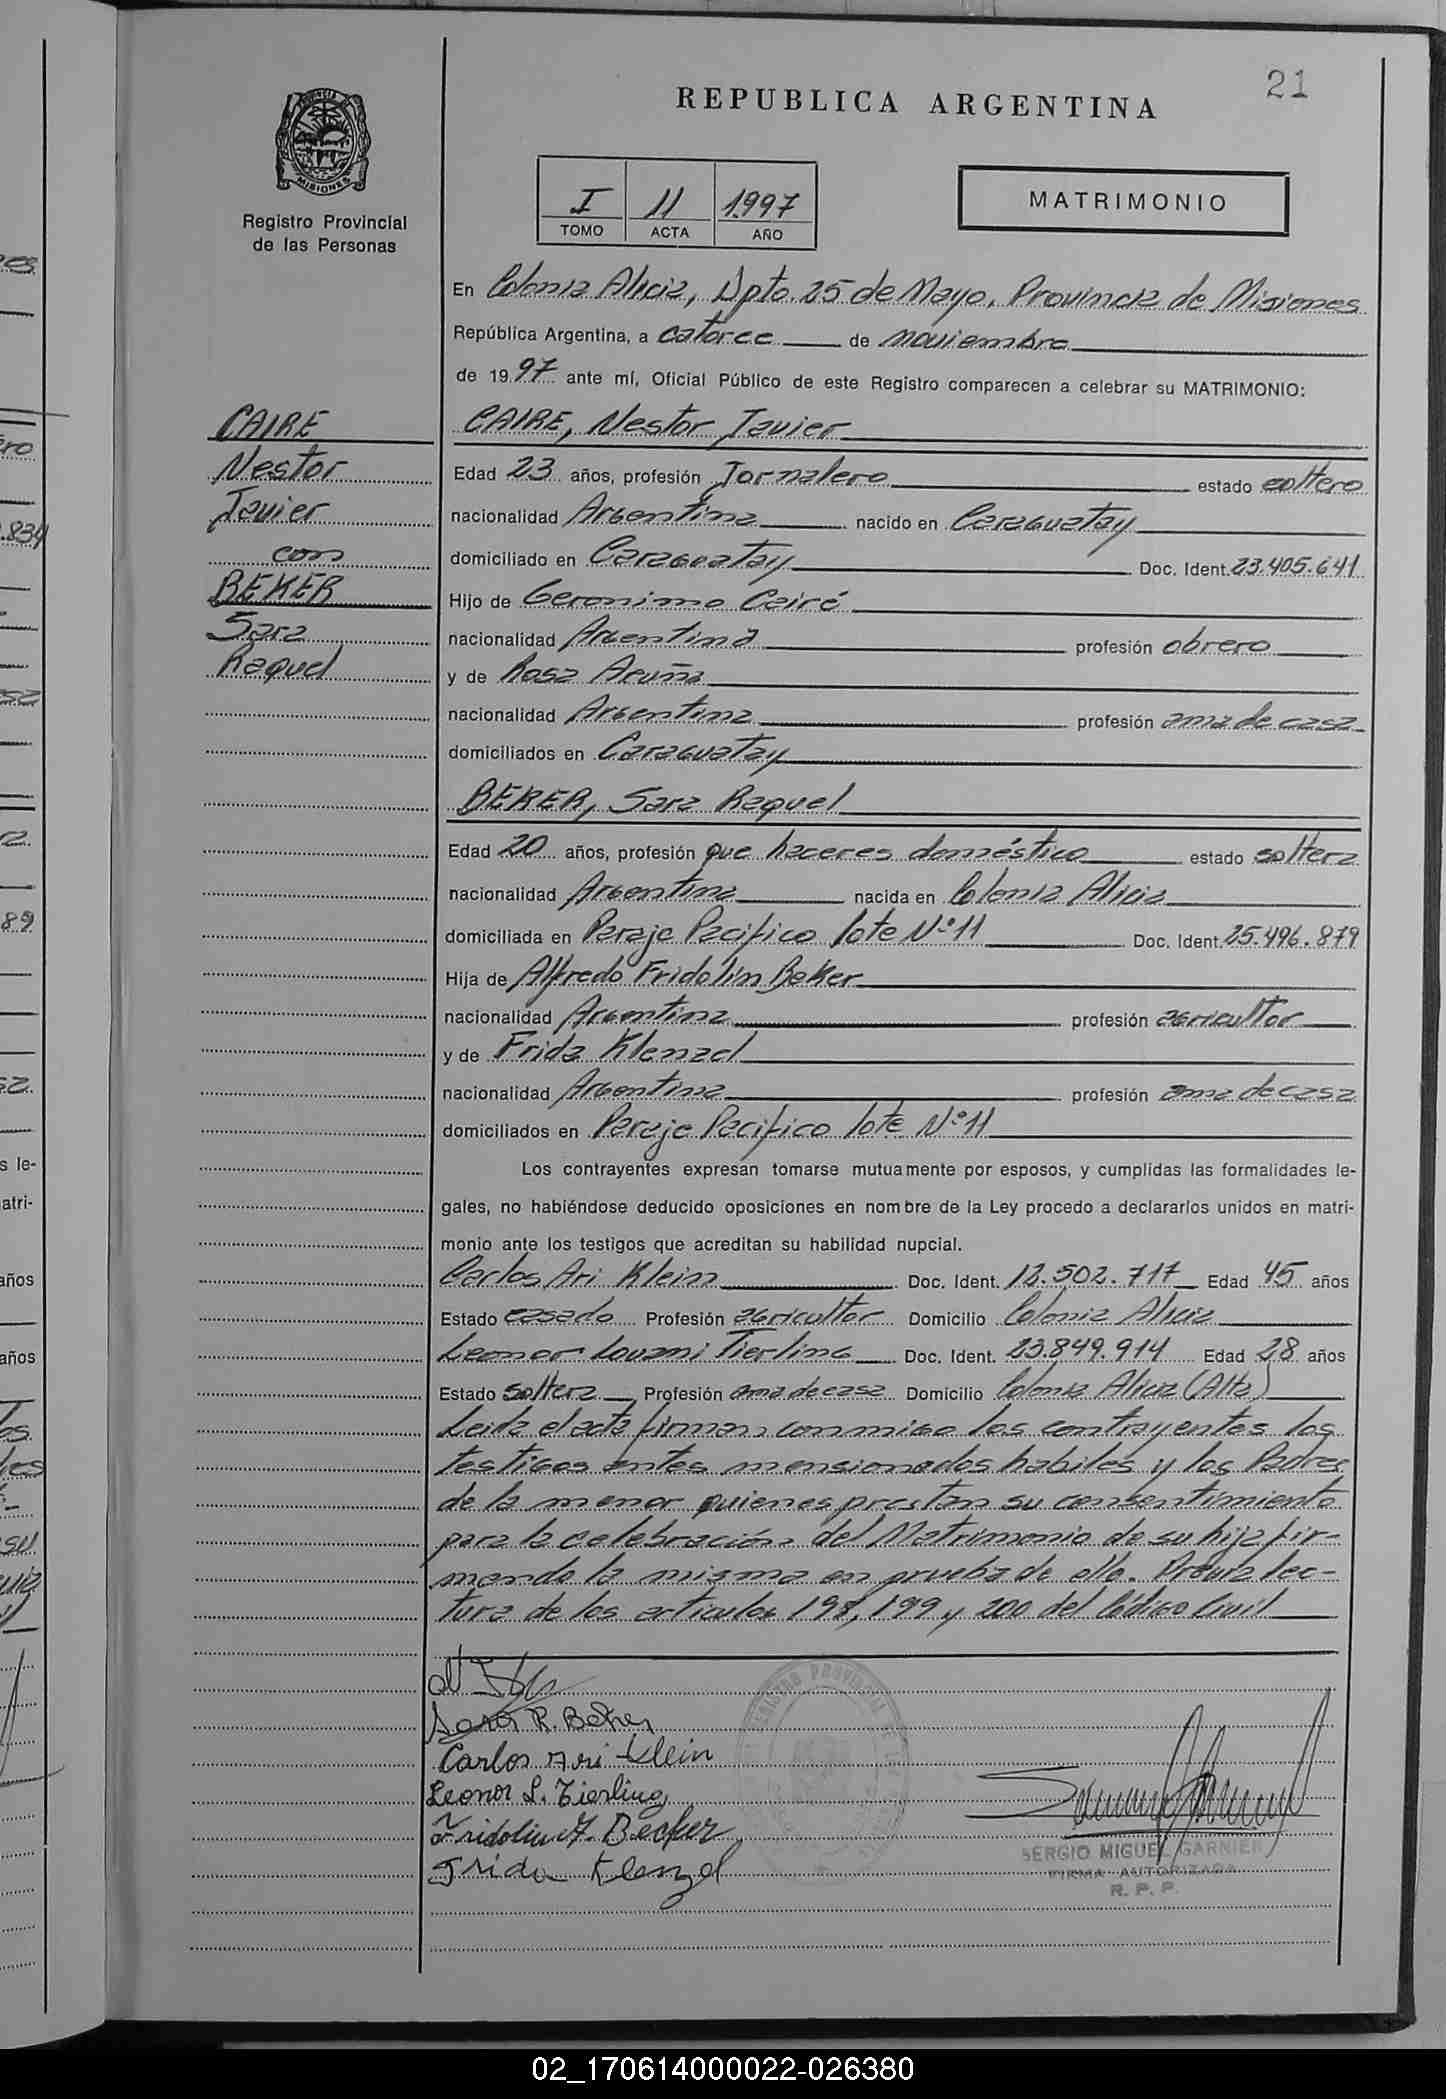 21
REPUBLICA ARGENTINA
PROVINCIA DE
MISIONES
Registro Provincial
de las Personas
I 11 1997
TOMO ACTA AÑO
MATRIMONIO
En Colonia Alicia, Dpto. 25 de Mayo, Provincia de Misiones
República Argentina, a catorce de noviembre
de 1997 ante mí, Oficial Público de este Registro comparecen a celebrar su MATRIMONIO:
CAIRE
Nestor
Javier
con
BEKER
Sara
Raquel
CAIRE, Nestor Javier
Edad 23 años, profesión Jornalero estado soltero
nacionalidad Argentina nacido en Caraguatay
domiciliado en Caraguatay Doc. Ident. 23.405.641
Hijo de Geronimo Cairé
nacionalidad Argentina profesión obrero
y de Rosa Acuña
nacionalidad Argentina profesión ama de casa
domiciliados en Caraguatay
BEKER, Sara Raquel
Edad 20 años, profesión que haceres doméstico estado soltera
nacionalidad Argentina nacida en Colonia Alicia
domiciliada en Paraje Pacifico lote Nº 11 Doc. Ident. 25.496.879
Hija de Alfredo Fridolin Beker
nacionalidad Argentina profesión agricultor
y de Frida Klenzel
nacionalidad Argentina profesión ama de casa
domiciliados en Paraje Pacifico lote Nº 11
Los contrayentes expresan tomarse mutuamente por esposos, y cumplidas las formalidades le-
gales, no habiéndose deducido oposiciones en nombre de la Ley procedo a declararlos unidos en matri-
monio ante los testigos que acreditan su habilidad nupcial.
Carlos Ari Klein Doc. Ident. 12.502.717 Edad 45 años
Estado casado Profesión agricultor Domicilio Colonia Alicia
Leonor Louani Tierling Doc. Ident. 23.849.914 Edad 28 años
Estado soltera Profesión ama de casa Domicilio Colonia Alicia (Alta)
Leida el acta firman conmigo los contrayentes los
testigos antes mensionados habiles y los Padres
de la menor quienes prestan su consentimiento
para la celebración del Matrimonio de su hija fir-
mando la misma en prueba de ello. Previa lec-
tura de los articulos 198, 199 y 200 del Código Civil
Sara R. Beker
Carlos Ari Klein
Leonor L. Tierling
Fridolin A. Becker
Frida Klenzel
REGISTRO PROVINCIAL DE LAS
SERGIO MIGUEL GARNIER
FIRMA AUTORIZADA
R. P. P.
02_170614000022-026380